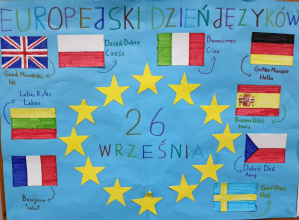 EUROPEJSKI DZIEŃ JĘZYKÓW
Dzień Dobry
Cześć
Buongiorno
Ciao
Good Morning
Hi
Guten Morgen
Hallo
Labas Rytas
Labas
26
WRZEŚNIA
Buenos Días
Hola
Dobrý Den
Ahoj
Bonjour
Salut
God
Hej